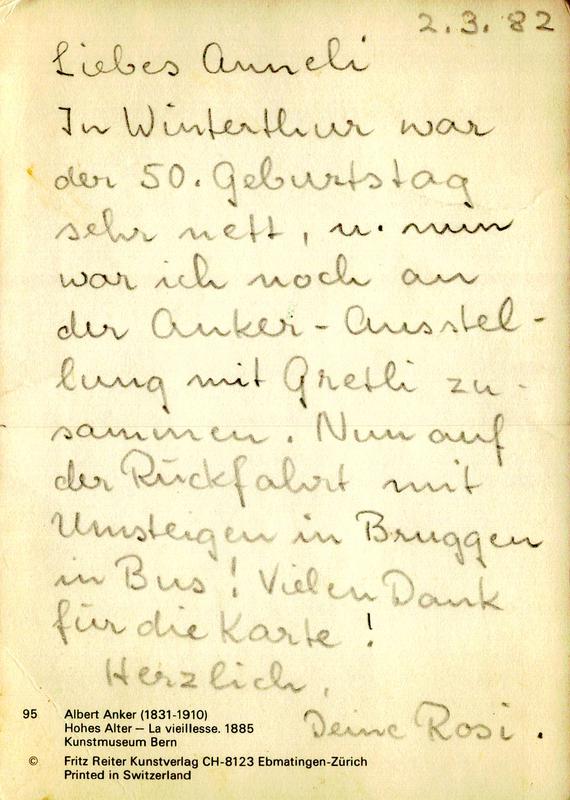 2.3.82
Liebes Anneli
In Winterthur war
der 50. Geburtstag
sehr nett, u. nun
war ich noch an
der Anker-Ausstel-
lung mit Gretli zu-
sammen. Nun auf
der Rückfahrt mit
Umsteigen in Bruggen
in Bus! Vielen Dank
für die Karte!
Herzlich,
Deine Rosi.
95 Albert Anker (1831-1910)
Hohes Alter – La vieillesse. 1885
Kunstmuseum Bern
© Fritz Reiter Kunstverlag CH-8123 Ebmatingen-Zürich
Printed in Switzerland